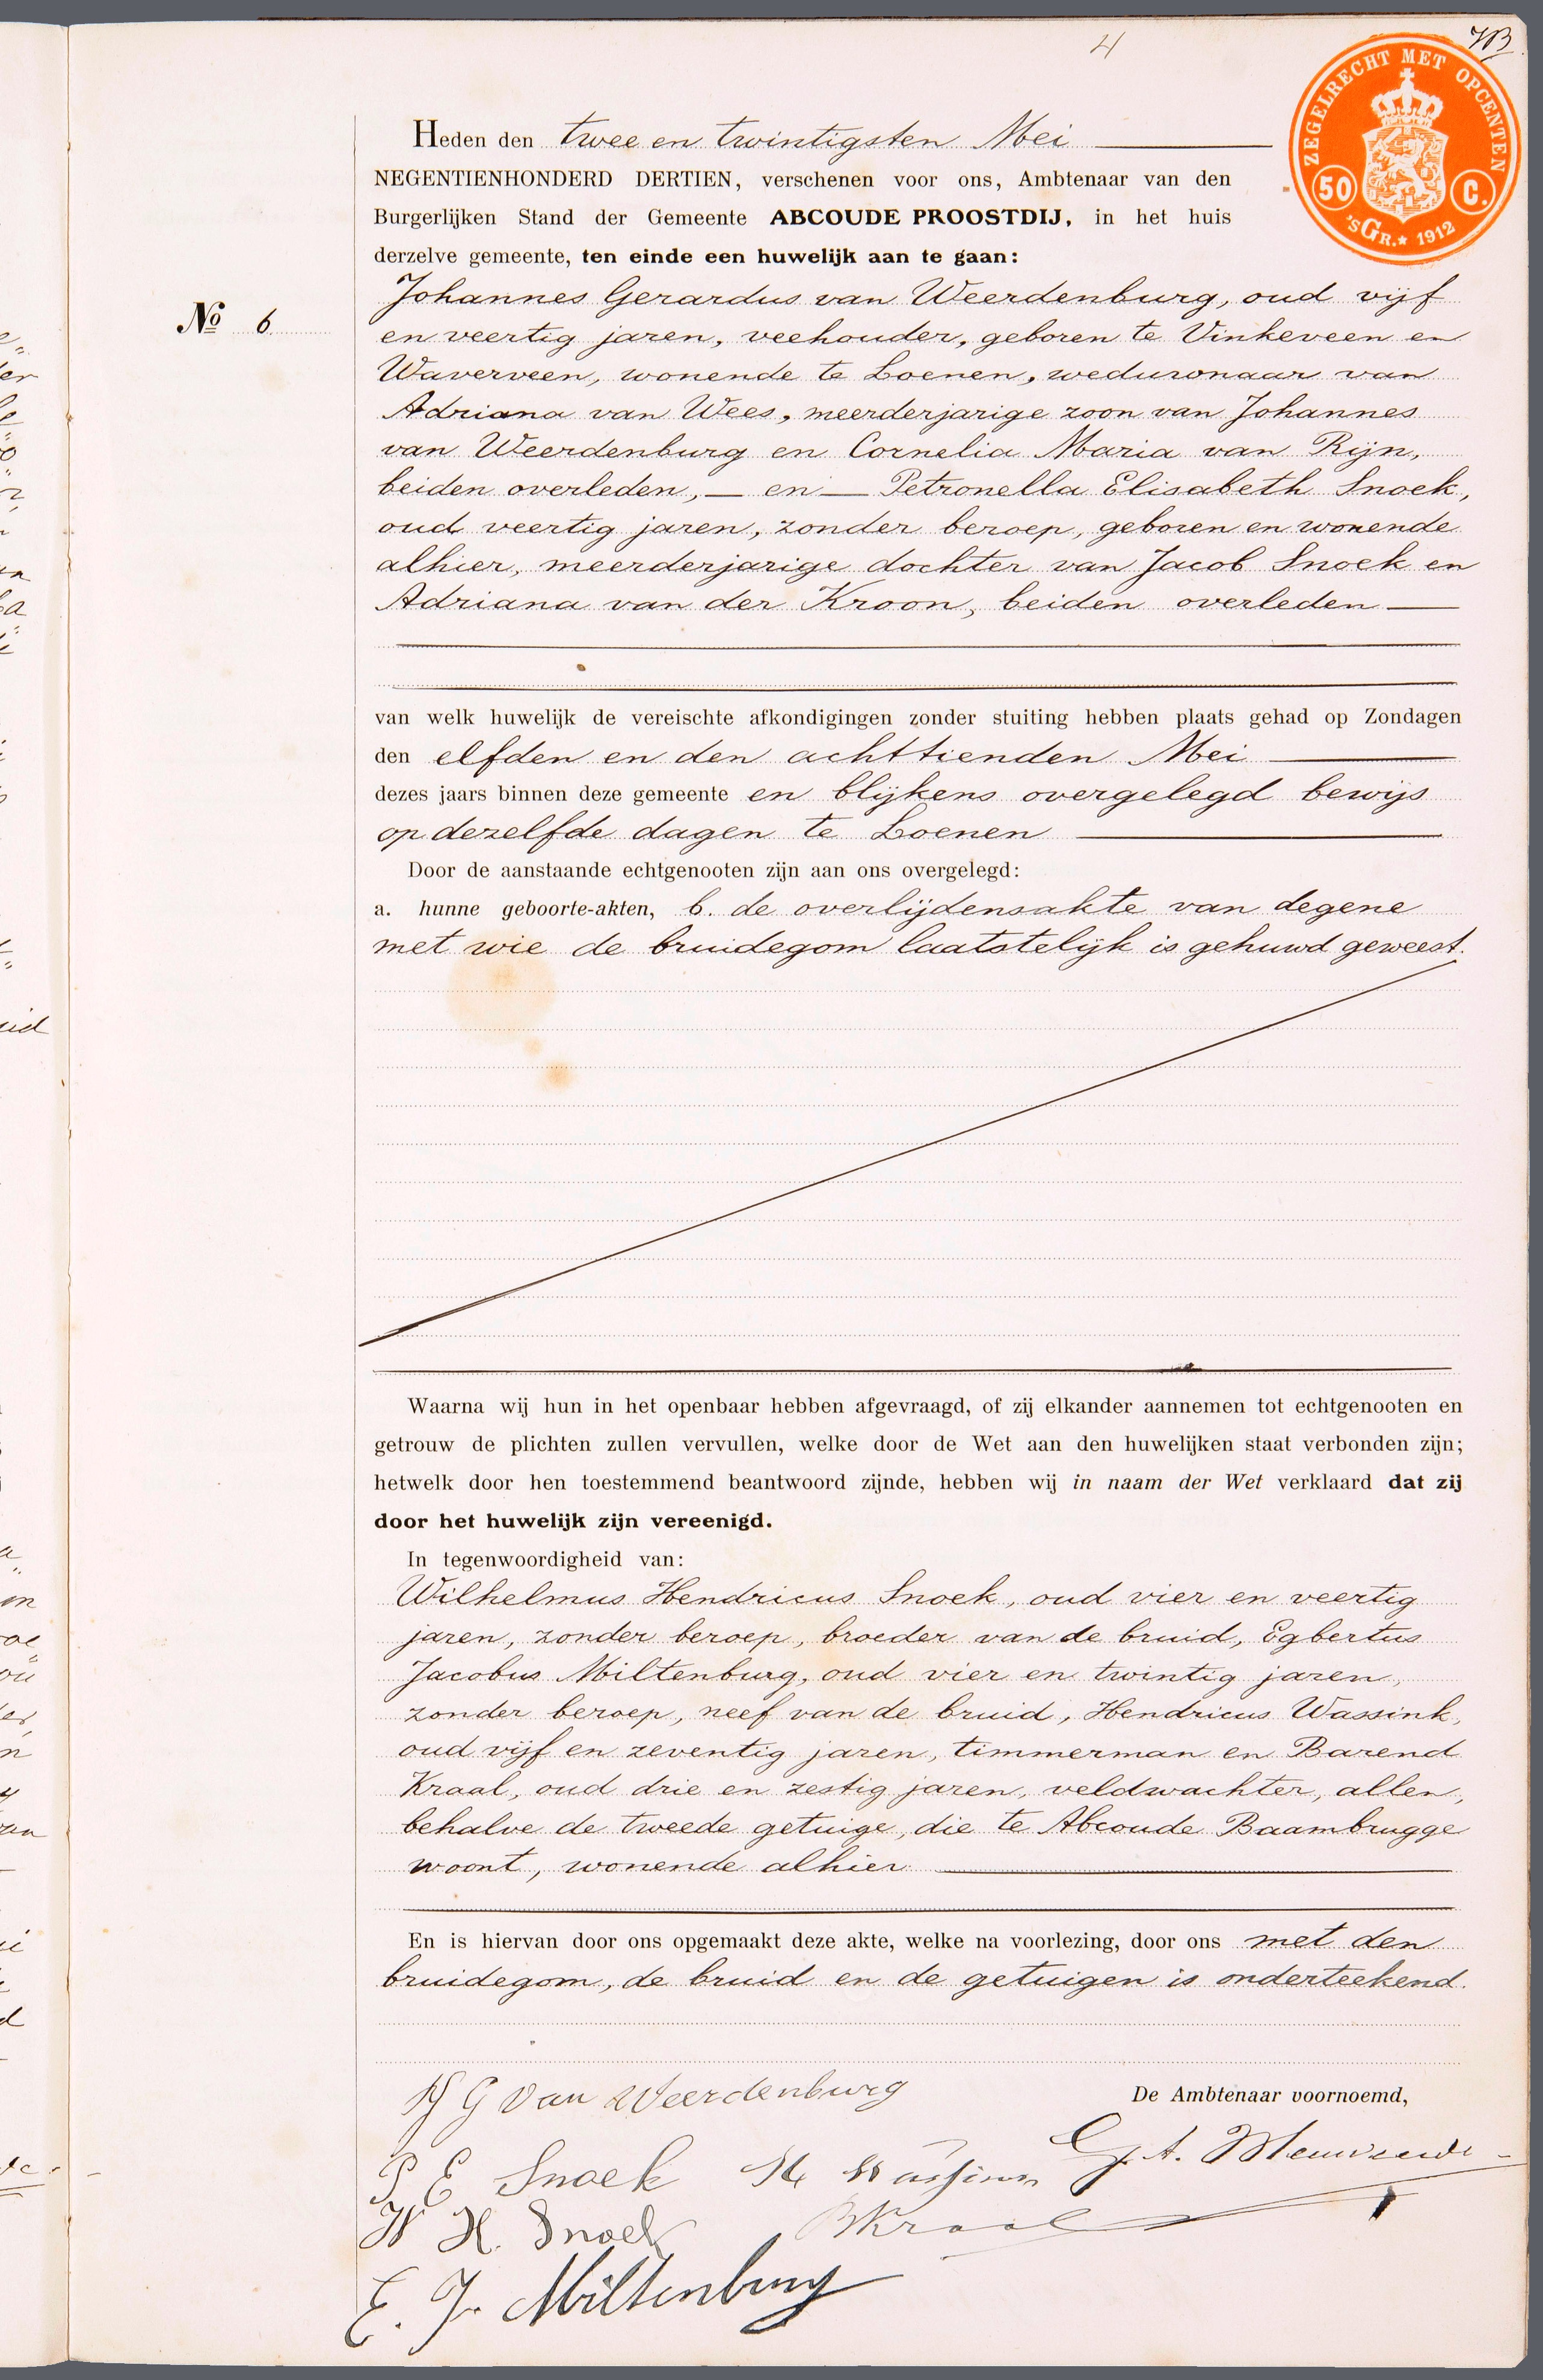 4
ZEGELRECHT MET OPCENTEN
50 C.
'sGR.★ 1912
Heden den twee en twintigsten Mei
NEGENTIENHONDERD DERTIEN, verschenen voor ons, Ambtenaar van den
Burgerlijken Stand der Gemeente ABCOUDE PROOSTDIJ, in het huis
derzelve gemeente, ten einde een huwelijk aan te gaan:
Johannes Gerardus van Weerdenburg, oud vijf
No 6
en veertig jaren, veehouder, geboren te Vinkeveen en
Waverveen, wonende te Loenen, weduwnaar van
Adriana van Wees, meerderjarige zoon van Johannes
van Weerdenburg en Cornelia Maria van Rijn,
beiden overleden, — en — Petronella Elisabeth Snoek,
oud veertig jaren, zonder beroep, geboren en wonende
alhier, meerderjarige dochter van Jacob Snoek en
Adriana van der Kroon, beiden overleden —
van welk huwelijk de vereischte afkondigingen zonder stuiting hebben plaats gehad op Zondagen
den elfden en den achttienden Mei
dezes jaars binnen deze gemeente en blijkens overgelegd bewijs
op dezelfde dagen te Loenen
Door de aanstaande echtgenooten zijn aan ons overgelegd:
a. hunne geboorte-akten, b. de overlijdensakte van degene
met wie de bruidegom laatstelijk is gehuwd geweest.
Waarna wij hun in het openbaar hebben afgevraagd, of zij elkander aannemen tot echtgenooten en
getrouw de plichten zullen vervullen, welke door de Wet aan den huwelijken staat verbonden zijn;
hetwelk door hen toestemmend beantwoord zijnde, hebben wij in naam der Wet verklaard dat zij
door het huwelijk zijn vereenigd.
In tegenwoordigheid van:
Wilhelmus Hendricus Snoek, oud vier en veertig
jaren, zonder beroep, broeder van de bruid, Egbertus
Jacobus Miltenburg, oud vier en twintig jaren,
zonder beroep, neef van de bruid, Hendricus Wassink,
oud vijf en zeventig jaren, timmerman en Barend
Kraal, oud drie en zestig jaren, veldwachter, allen,
behalve de tweede getuige, die te Abcoude Baambrugge
woont, wonende alhier
En is hiervan door ons opgemaakt deze akte, welke na voorlezing, door ons met den
bruidegom, de bruid en de getuigen is onderteekend.
J G Van Weerdenburg
De Ambtenaar voornoemd,
P E Snoek H Wassink
W H. Snoek BKraal
E. J. Miltenburg